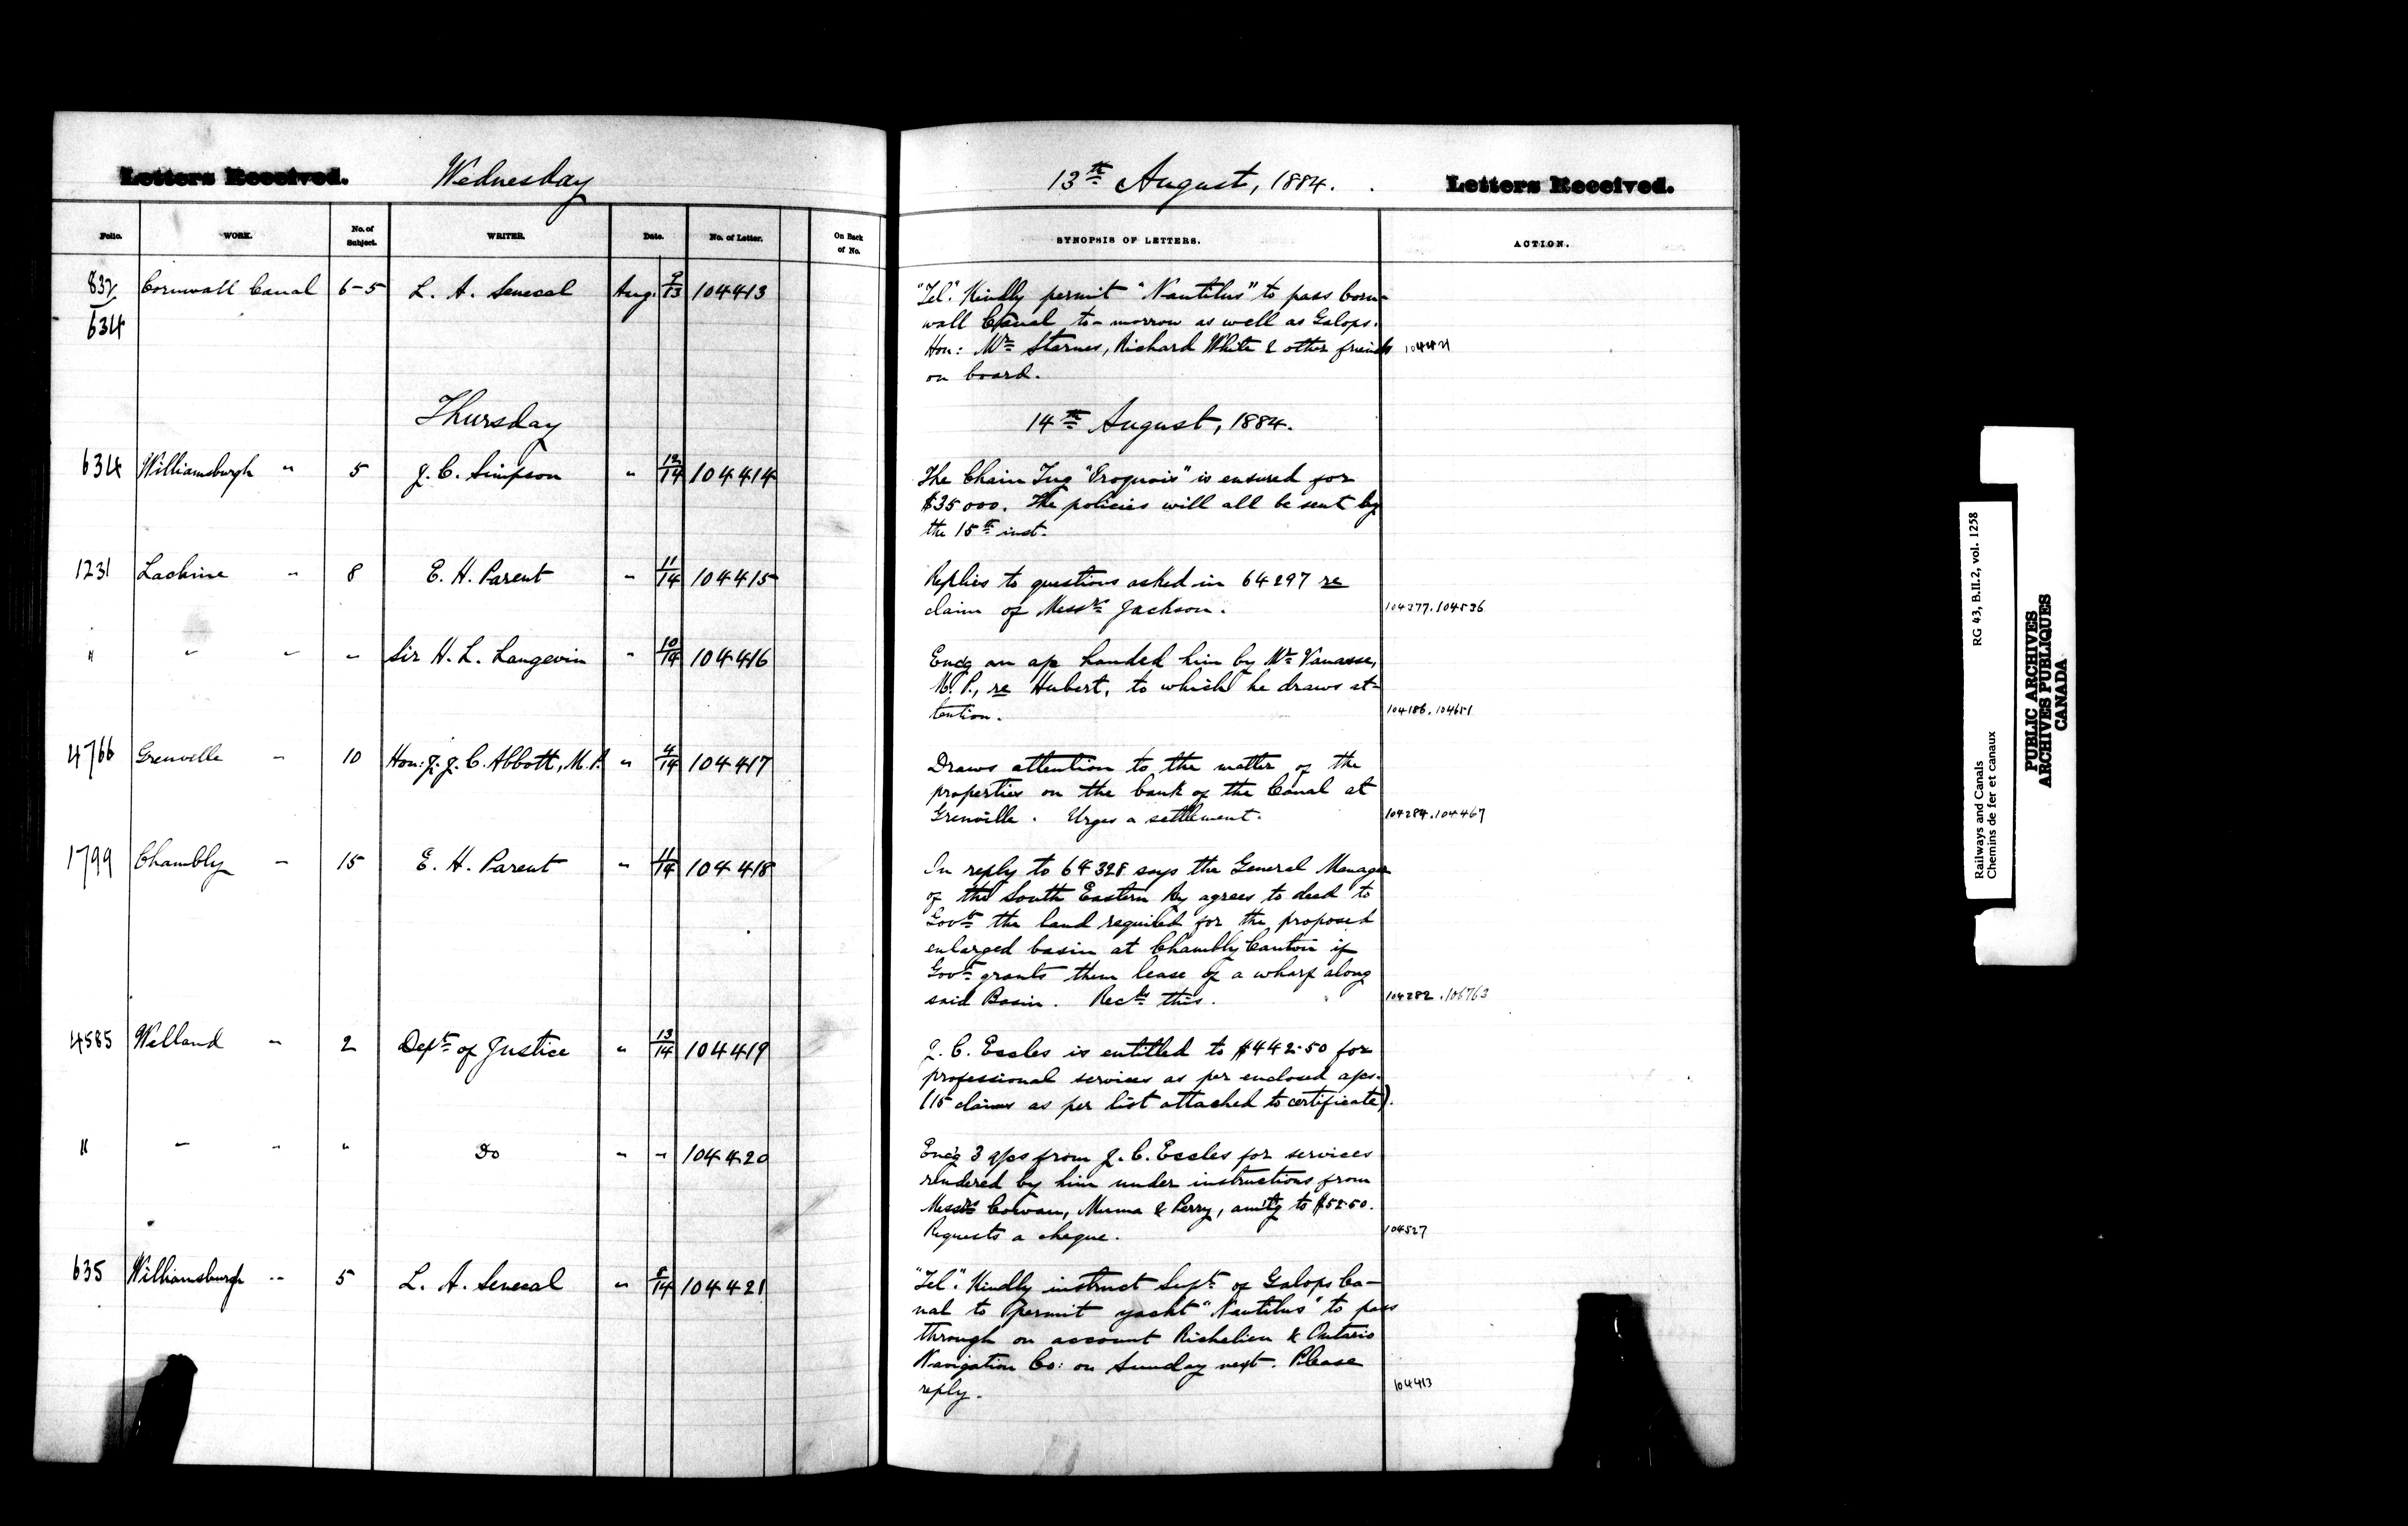 Letters Received. Wednesday 13th August, 1884. Letters Received.
Folio. WORK. No. of Subject. WRITER. Date. No. of Letter. On Back of No. SYNOPSIS OF LETTERS. ACTION.
832/634 Cornwall Canal 6-5 L. A. Senecal Aug. 9/13 104413
"Tel". Kindly permit "Nautilus" to pass Corn-
wall Canal to-morrow as well as Galops.
Hon: Mr Starnes, Richard White & other friends 104421
on board.
Thursday 14th August, 1884.
634 Williamsburgh " 5 J. C. Simpson " 12/14 104414
The Chain Tug "Iroquois" is ensured for
$35000. The policies will all be sent by
the 15th inst.
1231 Lachine " 8 E. H. Parent " 11/14 104415
Replies to questions asked in 64297 re
claim of Messrs Jackson. 104377.104536
" " " " Sir H. L. Langevin " 10/14 104416
Encg an ap handed him by Mr Vanasse,
M. P., re Hubert, to which he draws at-
tention. 104186.104651
4766 Grenville " 10 Hon: J. J. C. Abbott, M.P. " 4/14 104417
Draws attention to the matter of the
properties on the bank of the Canal at
Grenville. Urges a settlement. 104284.104467
1799 Chambly " 15 E. H. Parent " 11/14 104418
In reply to 64328 says the General Manager
of the South Eastern Ry agrees to deed to
Govt the land required for the proposed
enlarged basin at Chambly Canton if
Govt grants them lease of a wharf along
said Basin. Recds this. 104282.106763
4585 Welland " 2 Dept of Justice " 13/14 104419
J. C. Eccles is entitled to $442.50 for
professional services as per enclosed
(15 claims as per list attached to certificate).
" " " " Do " " 104420
Encg 3 a/cs from J. C. Eccles for services
rendered by him under instructions from
Messrs Cowan, Muma & Perry, amtg to $52.50.
Requests a cheque. 104527
635 Williamsburgh " 5 L. A. Senecal " 8/14 104421
"Tel". Kindly instruct Supt of Galops Ca-
nal to permit yacht "Nautilus" to pass
through on account Richelieu & Ontario
Navigation Co: on Sunday next. Please
reply. 104413
RG 43, B.III.2, vol. 1258
Railways and Canals
Chemins de fer et canaux
PUBLIC ARCHIVES
ARCHIVES PUBLIQUES
CANADA